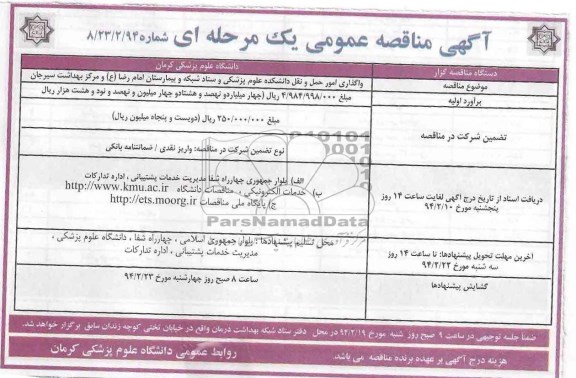 آگهی مناقصه عمومی یک مرحله ای شماره ۸/۲۳/۲/۹۴
دستگاه مناقصه گزار
دانشگاه علوم پزشکی کرمان
موضوع مناقصه
واگذاری امور حمل و نقل دانشکده علوم پزشکی و ستاد شبکه و بیمارستان امام رضا (ع) و مرکز بهداشت سیرجان
برآورد اولیه
مبلغ ۴/۹۸۴/۹۹۸/۰۰۰ ریال (چهار میلیاردو نهصد و هشتادو چهار میلیون و نهصد و نود و هشت هزار ریال
تضمین شرکت در مناقصه
مبلغ ۲۵۰/۰۰۰/۰۰۰ ریال (دویست و پنجاه میلیون ریال)
نوع تضمین شرکت در مناقصه: واریز نقدی / ضمانتنامه بانکی
دریافت اسناد از تاریخ درج آگهی لغایت ساعت ۱۴ روز
پنجشنبه مورخ ۹۴/۲/۱۰
الف) بلوار جمهوری چهارراه شفا مدیریت خدمات پشتیبانی ، اداره تدارکات
ب) خدمات الکترونیکی ، مناقصات دانشگاه http://www.kmu.ac.ir
ج) پایگاه ملی مناقصات http://ets.moorg.ir
ParsNamadData
آخرین مهلت تحویل پیشنهادها: تا ساعت ۱۴ روز
سه شنبه مورخ ۹۴/۲/۲۲
محل تسلیم پیشنهادها : بلوار جمهوری اسلامی ، چهارراه شفا ، دانشگاه علوم پزشکی ،
مدیریت خدمات پشتیبانی ، اداره تدارکات
گشایش پیشنهادها
ساعت ۸ صبح روز چهارشنبه مورخ ۹۴/۲/۲۳
ضمناً جلسه توجیهی در ساعت ۹ صبح روز شنبه مورخ ۹۴/۲/۱۹ در محل دفتر ستاد شبکه بهداشت درمان واقع در خیابان تختی کوچه زندان سابق برگزار خواهد شد.
هزینه درج آگهی بر عهده برنده مناقصه می باشد.
روابط عمومی دانشگاه علوم پزشکی کرمان